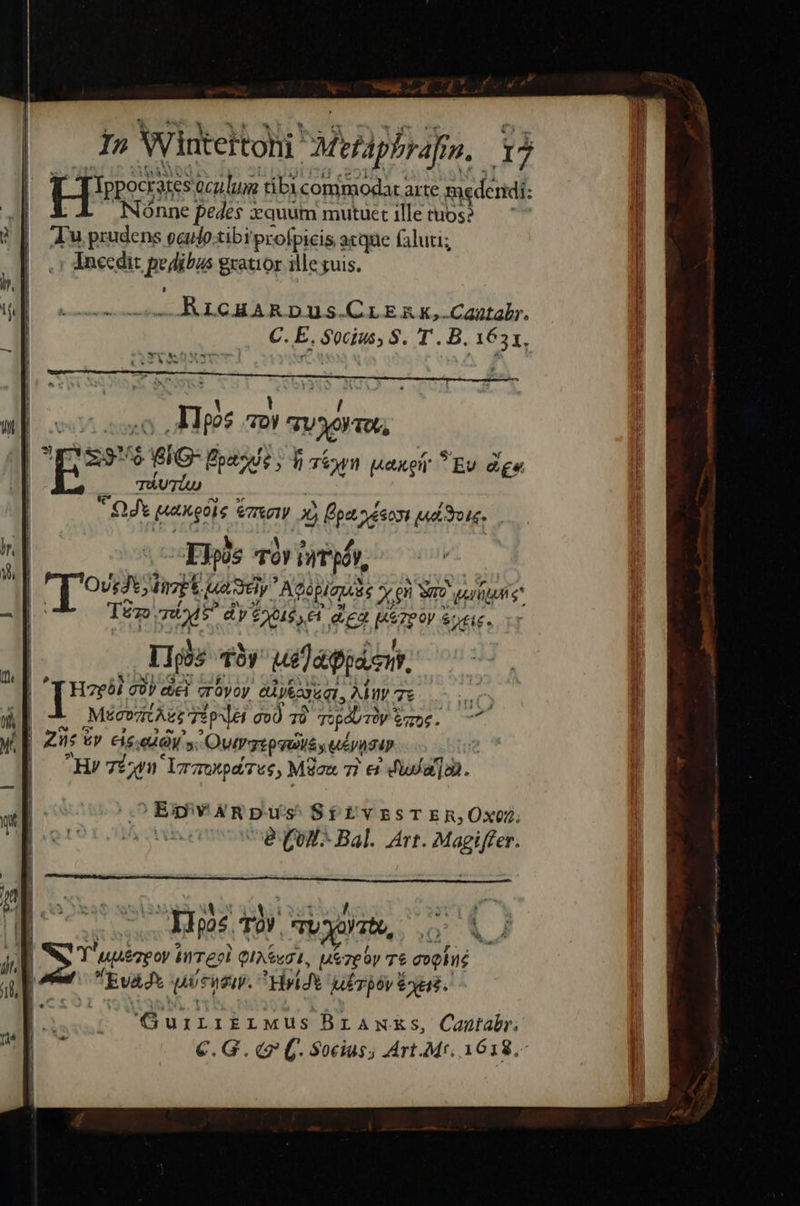 In Wintertoni Metaphrasin. 17
HIppocrates oculum tibi commodat arte medendi:
Nónne pedes æquum mutuet ille tuos?
Tu prudens oculo tibi prospicis atque saluti;
Incedit pedibus gratior ille suis.
RICHARDUS CLERK, Cantabr.
C. E. Socius, S. T. B. 1631.
Πρὸς τὸν τυχόντα,
ὁ βίος βραχύς, ἡ τέχνη μακρή· Ἐν ἄρα
ταύτῃ
Ὧδε μακροῖς ἔπεσιν καὶ βραχέσσι μάθοις.
Πρὸς τὸν ἰητρόν,
μαθεῖν Ἀφορίσμους χρὴ ἀπὸ μνήμης·
ἂν ἔχοις, εἰ ἄρα μέτρον ἔχεις.
Πρὸς τὴν μετάφρασιν.
ἸΗτροὶ σὸν ἀεὶ πόνον αἰνέουσι, λίην τε
Μουσοπόλους τέρψει σοῦ τὸ τορευτὸν ἔπος.
Ζῇς ἐν
Ἦν τέχνη Ἱπποκράτους, Μοῦσα τὶ εἰ δύναται.
EDVARDUS SILVESTER, Oxon.
è Coll. Bal. Art. Magister.
Πρὸς τὸν τυχόντα,
Ὑμέτερον ἰητροὶ φιλέουσι, μέτρον τε σοφίης
Ἐνθάδε μύστησιν. Ἠνίδε μέτρον ἔχεις.
GUILIELMUS BLANKS, Cantabr.
C. G. & C. Socius, Art. Mr. 1618.